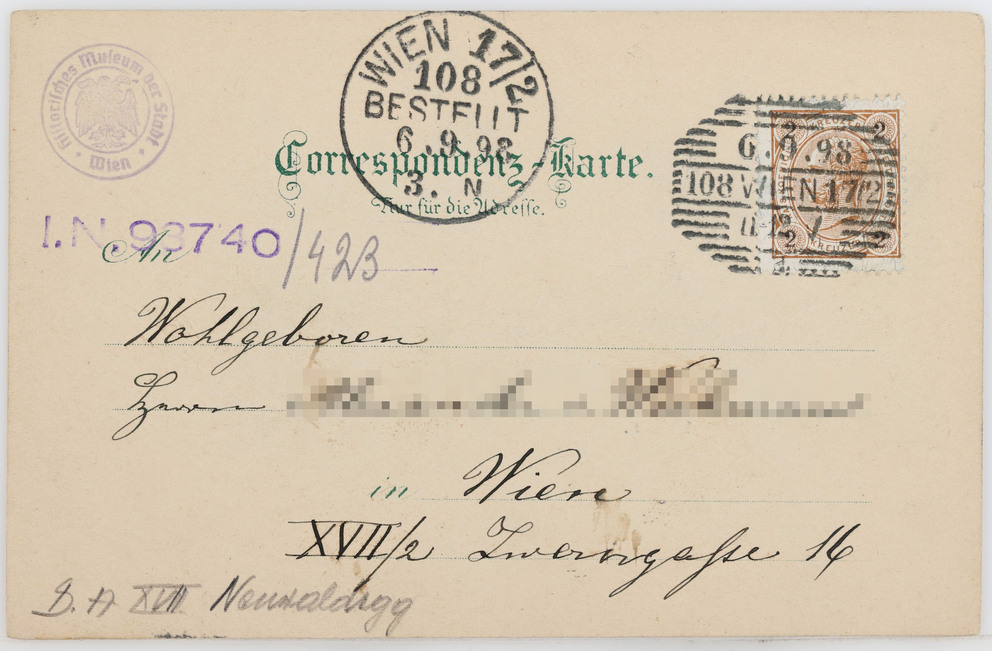 Historisches Museum der Stadt
Wien
WIEN 17/2
108
BESTELLT
6.9.98
3. N
Correspondenz-Karte.
Nur für die Adresse.
2 KREUZER 2
6.9.98
108 WIEN 17/2
2 KREUZER 2
I.N. 93740/423
An
Wohlgeboren
Herrn
in Wien
XVII/2 16
XVII Neuwaldegg